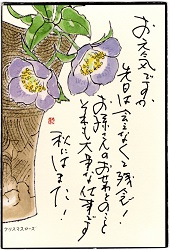 お元気ですか
先日は会えなくて残念!
お孫さんのおせわとのこと
それも大事な仕事です
秋にはまた!
クリスマスローズ